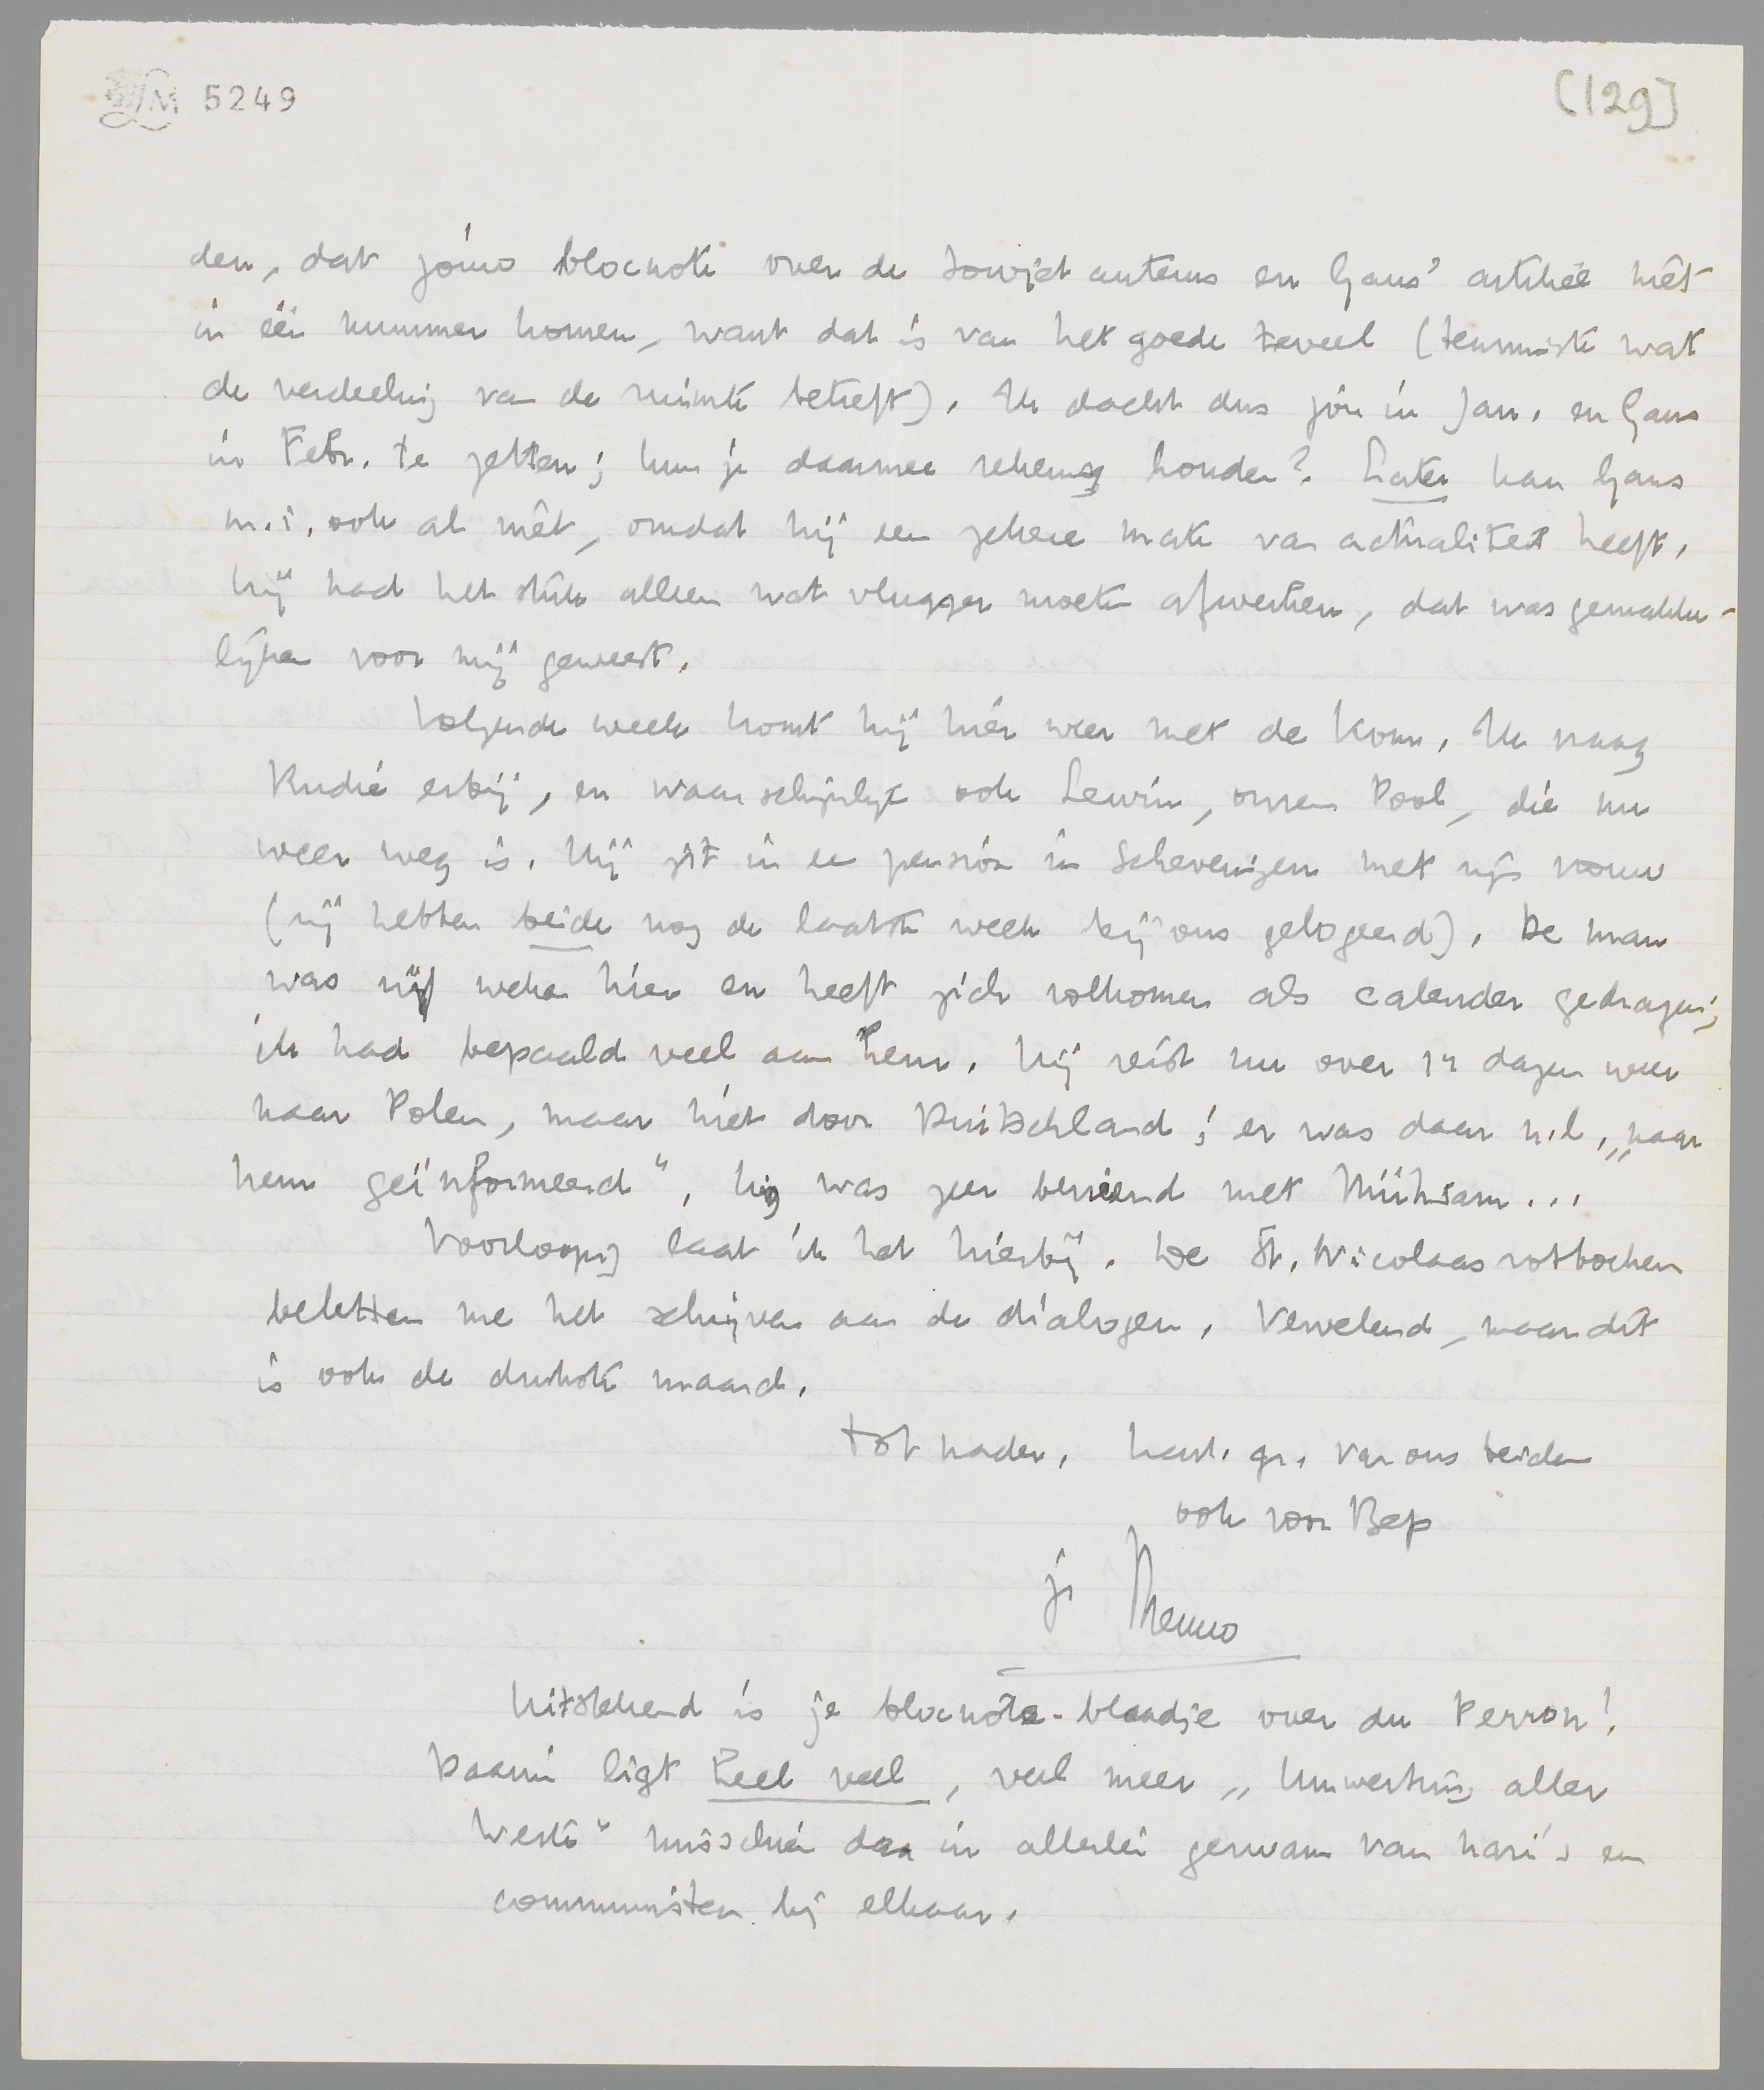 5249
[129]
den, dat jóuw blocnote over de Sowjet auteurs en Gans' artikel niet
in één nummer komen, want dat is van het goede teveel (tenminste wat
de verdeeling van de ruimte betreft). Ik dacht dus jou in Jan. en Gans
in Febr. te zetten; kun je daarmee rekening houden? Later kan Gans
m.i. ook al niet, omdat hij een zekere mate van actualiteit heeft.
hij had het stuk alleen wat vlugger moeten afwerken, dat was gemakke-
lijker voor mij geweest.
Volgende week komt hij hier weer met de Kom. Ik vraag
Rudie erbij, en waarschijnlijk ook Lewin, onzen Pool, die nu
weer weg is. Hij zit in een pension in Scheveningen met zijn vrouw
(zij hebben beide nog de laatste week bij ons gelogeerd). De man
was vijf weken hier en heeft zich volkomen als calender gedragen;
ik had bepaald veel aan hem. Hij reist nu over 14 dagen weer
naar Polen, maar niet door Duitschland; er was daar n.l. „naar
hem geïnformeerd", hij was zeer bevriend met Mühsam...
Voorloopig laat ik het hierbij. De St. Nicolaas rotboeken
beletten me het schrijven aan de dialogen. Vervelend, maar dit
is ook de drukste maand.
Tot nader, hart. gr. van ons beiden
ook voor Bep
je Menno
Uitstekend is je blocnote-blaadje over du Perron!
Daarin ligt heel veel, veel meer „Umwertung aller
Werte" misschien dan in allerlei gezwam van nazi's en
communisten bij elkaar.